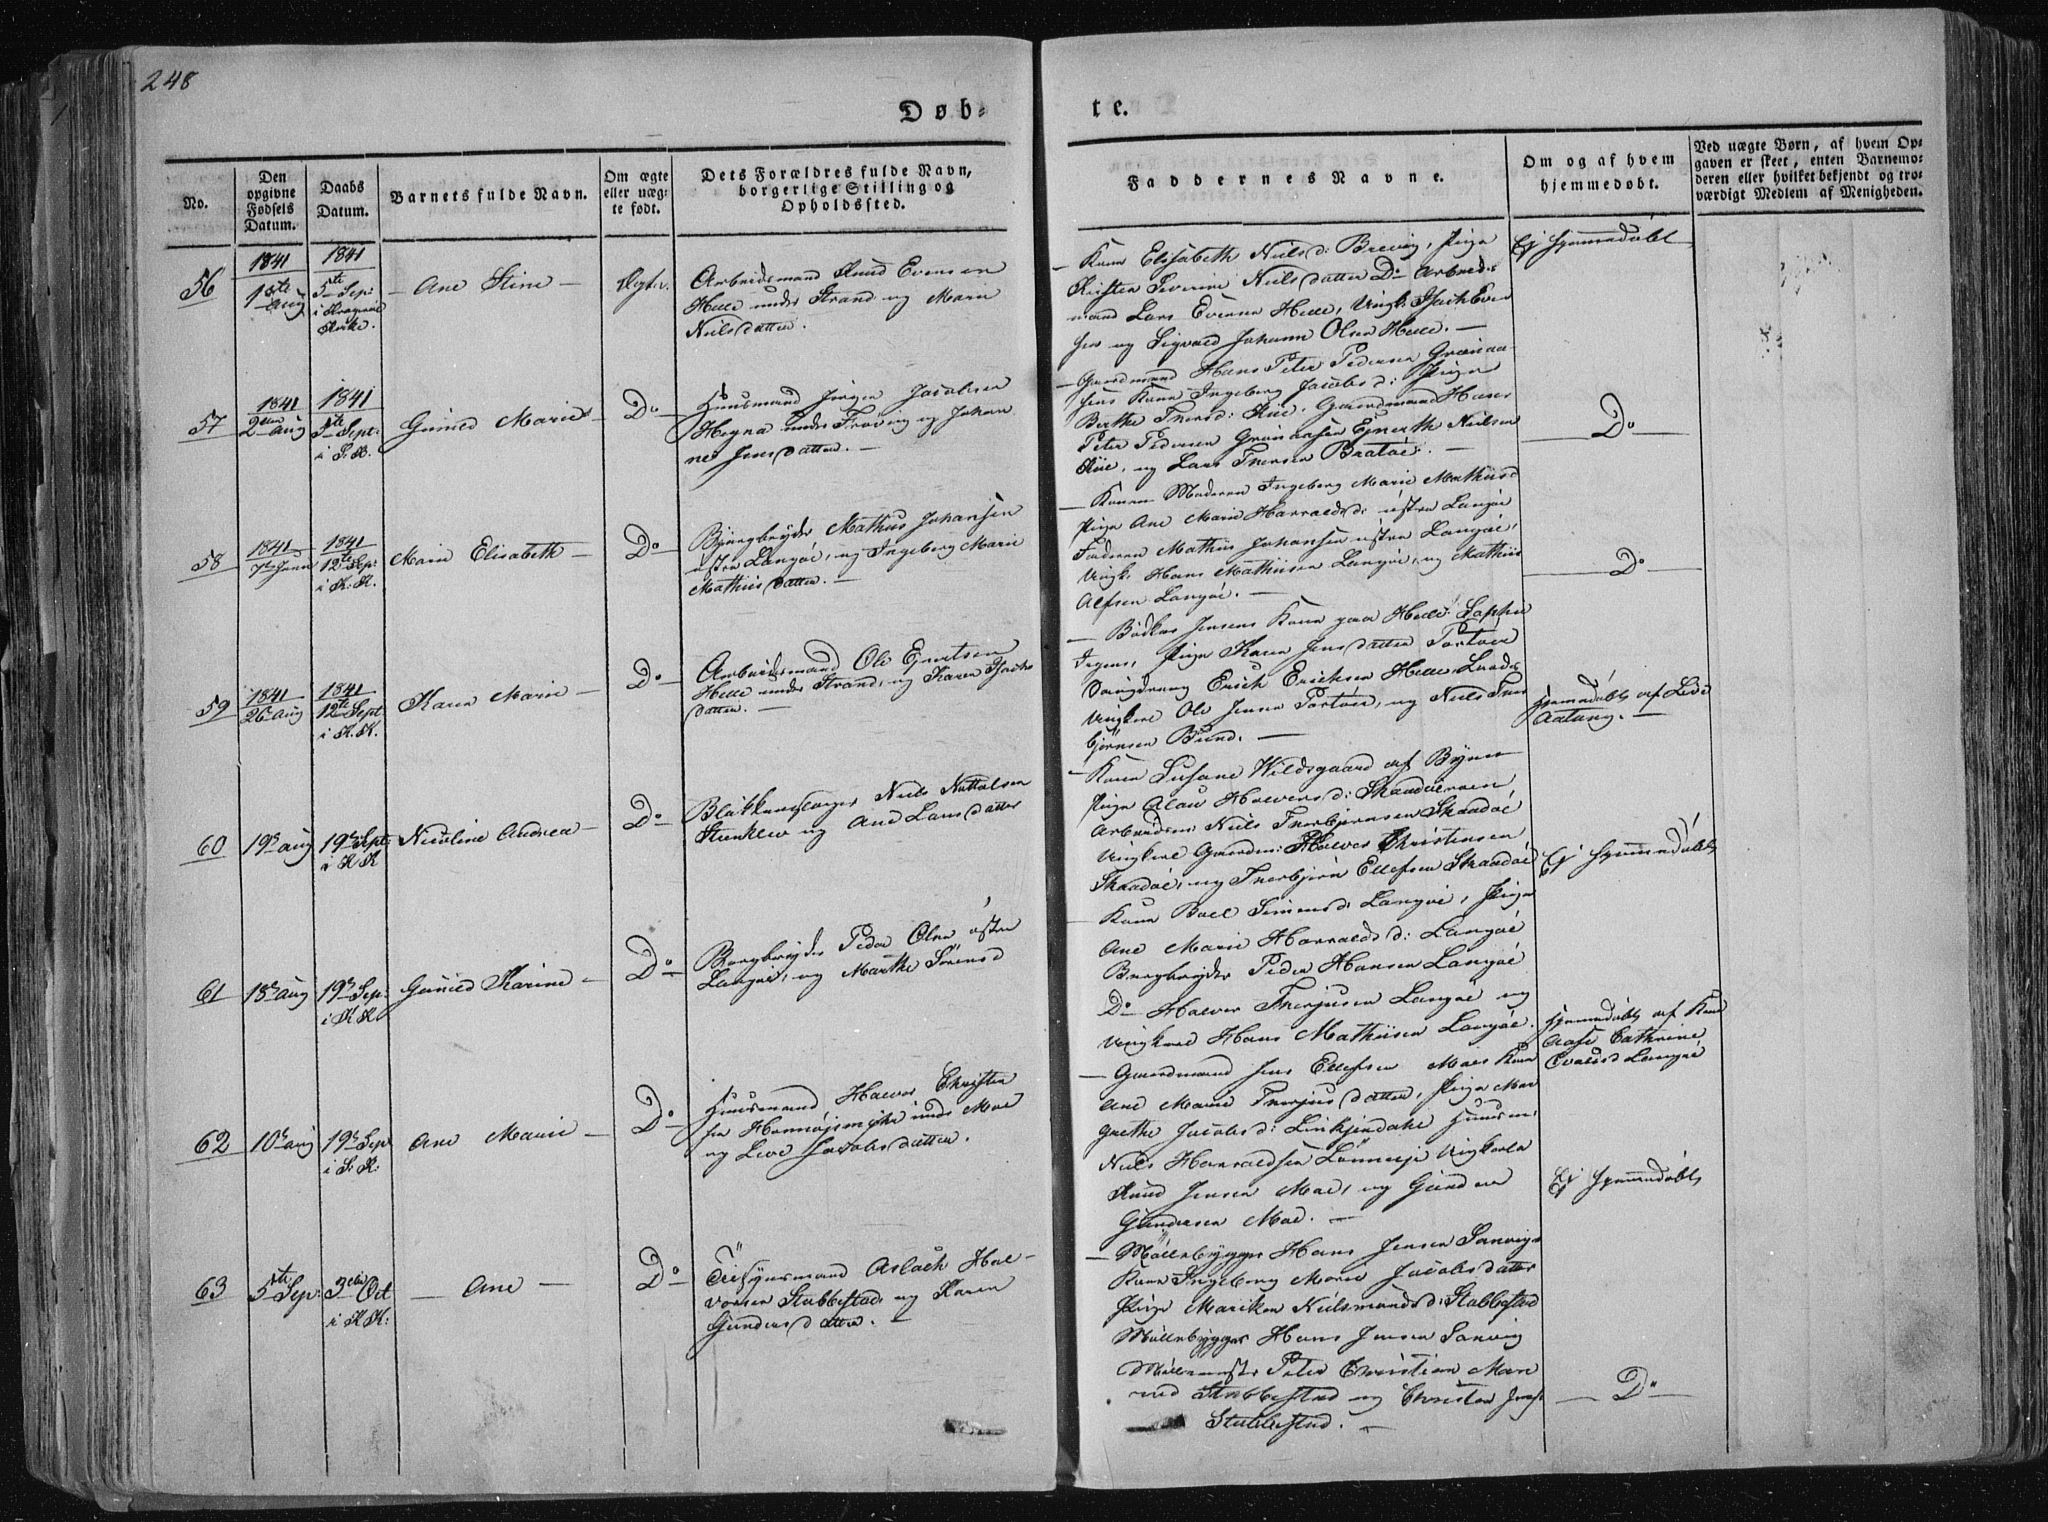 248
Døb-
te.
No.
Den
opgivne
Fødsels
Datum.
Daabs
Datum.
Barnets fulde Navn.
Om ægte
eller uæg-
te født.
Dets Forældres fulde Navn,
borgerlige Stilling og
Opholdssted.
Faddernes Navne.
Om og af hvem
hjemmedøbt.
Ved uægte Børn, af hvem Op-
gaven er skeet, enten Barnemo-
deren eller hvilket bekjendt og tro-
værdigt Medlem af Menigheden.
56
1841
1ste Aug
1841
5te Sep:
i Kragerøe
Kirke.
Ane Stine
Ægte.
Arbeidsmand Knud Evensen
Helle under Strand og Marie
Nielsdatter.
Kone Elisabeth Nielsd: Brevig, Pige
Kirsten Severine Nielsdatter Do Arbeids
mand Lars Evensen Helle, Ungk: Isach Even
sen og Sigvald Johann Olsen Helle. —
Ej hjemmedøbt
57
1841
2den Aug
1841
5te Sept:
i S. K.
Gunild Marie
Do
Huusmand Jørgen Jacobsen
Hegna under Frovig og Johan
ne Jensdatter. —
Gaardmand Hans Peter Pedersen Grønaa-
sens Kone Ingeborg Jacobsd: Pige
Berthe Thorsd: Kiil. Gaardmand Hans
Peter Pedersen Grønaasen Ejnerth Nielsen
Kiil, og Lars Thorsen Bratøe. —
Do
58
1841
7de Juni
1841
12te Sep:
i K. K.
Maren Elisabeth
Do
Bjergbryder Mathis Johansen
østre Langøe, og Ingeborg Marie
Mathisdatter. —
Konen Moderen Ingeborg Marie Mathisd
Pige Ane Marie Harraldsd: østre Langøe
Faderen Mathis Johansen østre Langøe,
Ungk. Hans Mathisen Langøe, og Mathis
Alfsen Langøe. —
Do
59
1841
26 Aug
1841
12te Sept
i K. K.
Karen Marie
Do
Arbeidsmand Ole Ejvertsen
Helle under Strand, og Karen Isachs
datter. —
Bødker Jensens Kone paa Helle Sophie
Pige Karen Jensdatter Portøer
Erich Erichsen Helle,
Ungkarl Ole Jensen Portøer, og Niels Thor
bjørnsen Bund. —
hjemmedøbt af Live
Aatang. —
60
19de Aug
19de Sept
i K K
Nicoline Andrea
Do
Niels Nattalsen
Stenklev og Ane Larsdatter
Kone Susane Wildsgaard af Byen
Pige Alau Halversd: Skaadøeroen
Arbeidsm Niels Thorbjørnsen Skaadøe
Ungkarl Gaarden: Halvor Christensen
Skaadøe, og Thorbjørn Ellefsen Skaadøe
Ej hjemmedøbt
61
18de Aug
19de Sep:
i K K.
Gunild Karine
Do
Bergbryder Peder Olsen østre
Langøe, og Marthe Sørensd
Kone Boel Simensd: Langøe, Pige
Ane Marie Harraldsd: Langøe
Bergbryder Peder Hansen Langøe
Do Halvor Therjusen Langøe og
Ungkarl Hans Mathisen Langøe.
hjemmedøbt af Kone
Aase Cathrine
Langøe
62
10de Aug
19de Sep
i S: K:
Ane Marie
Do
Huusmand Halvor Christen
sen under Moe
og Live Jacobsdatter.
Gaardmand Jens Ellefsen Moes Kone
Ane Marie Therjusdatter, Pige Mar
grethe Jacobsd: Huusm:
Niels Harraldsen Ungkarle
Knud Jensen Moe, og Gunder
Gundersen Moe. —
Ej hjemmedøbt
63
5te Sep:
3die Oct
i K K:
Ane
Do
Aslach Hal-
vorsen Stabbestad og Karen
Gundersdatter. —
Møllebygger Hans Jensen Sanvigs
Kone Ingeborg Marie Jacobsdatter
Pige Mariken Nielsmandsd: Stabbestad
Møllebygger Hans Jensen Sanvig
Peter Christian
Stabbestad og Christen Jens
Stabbestad. —
Do